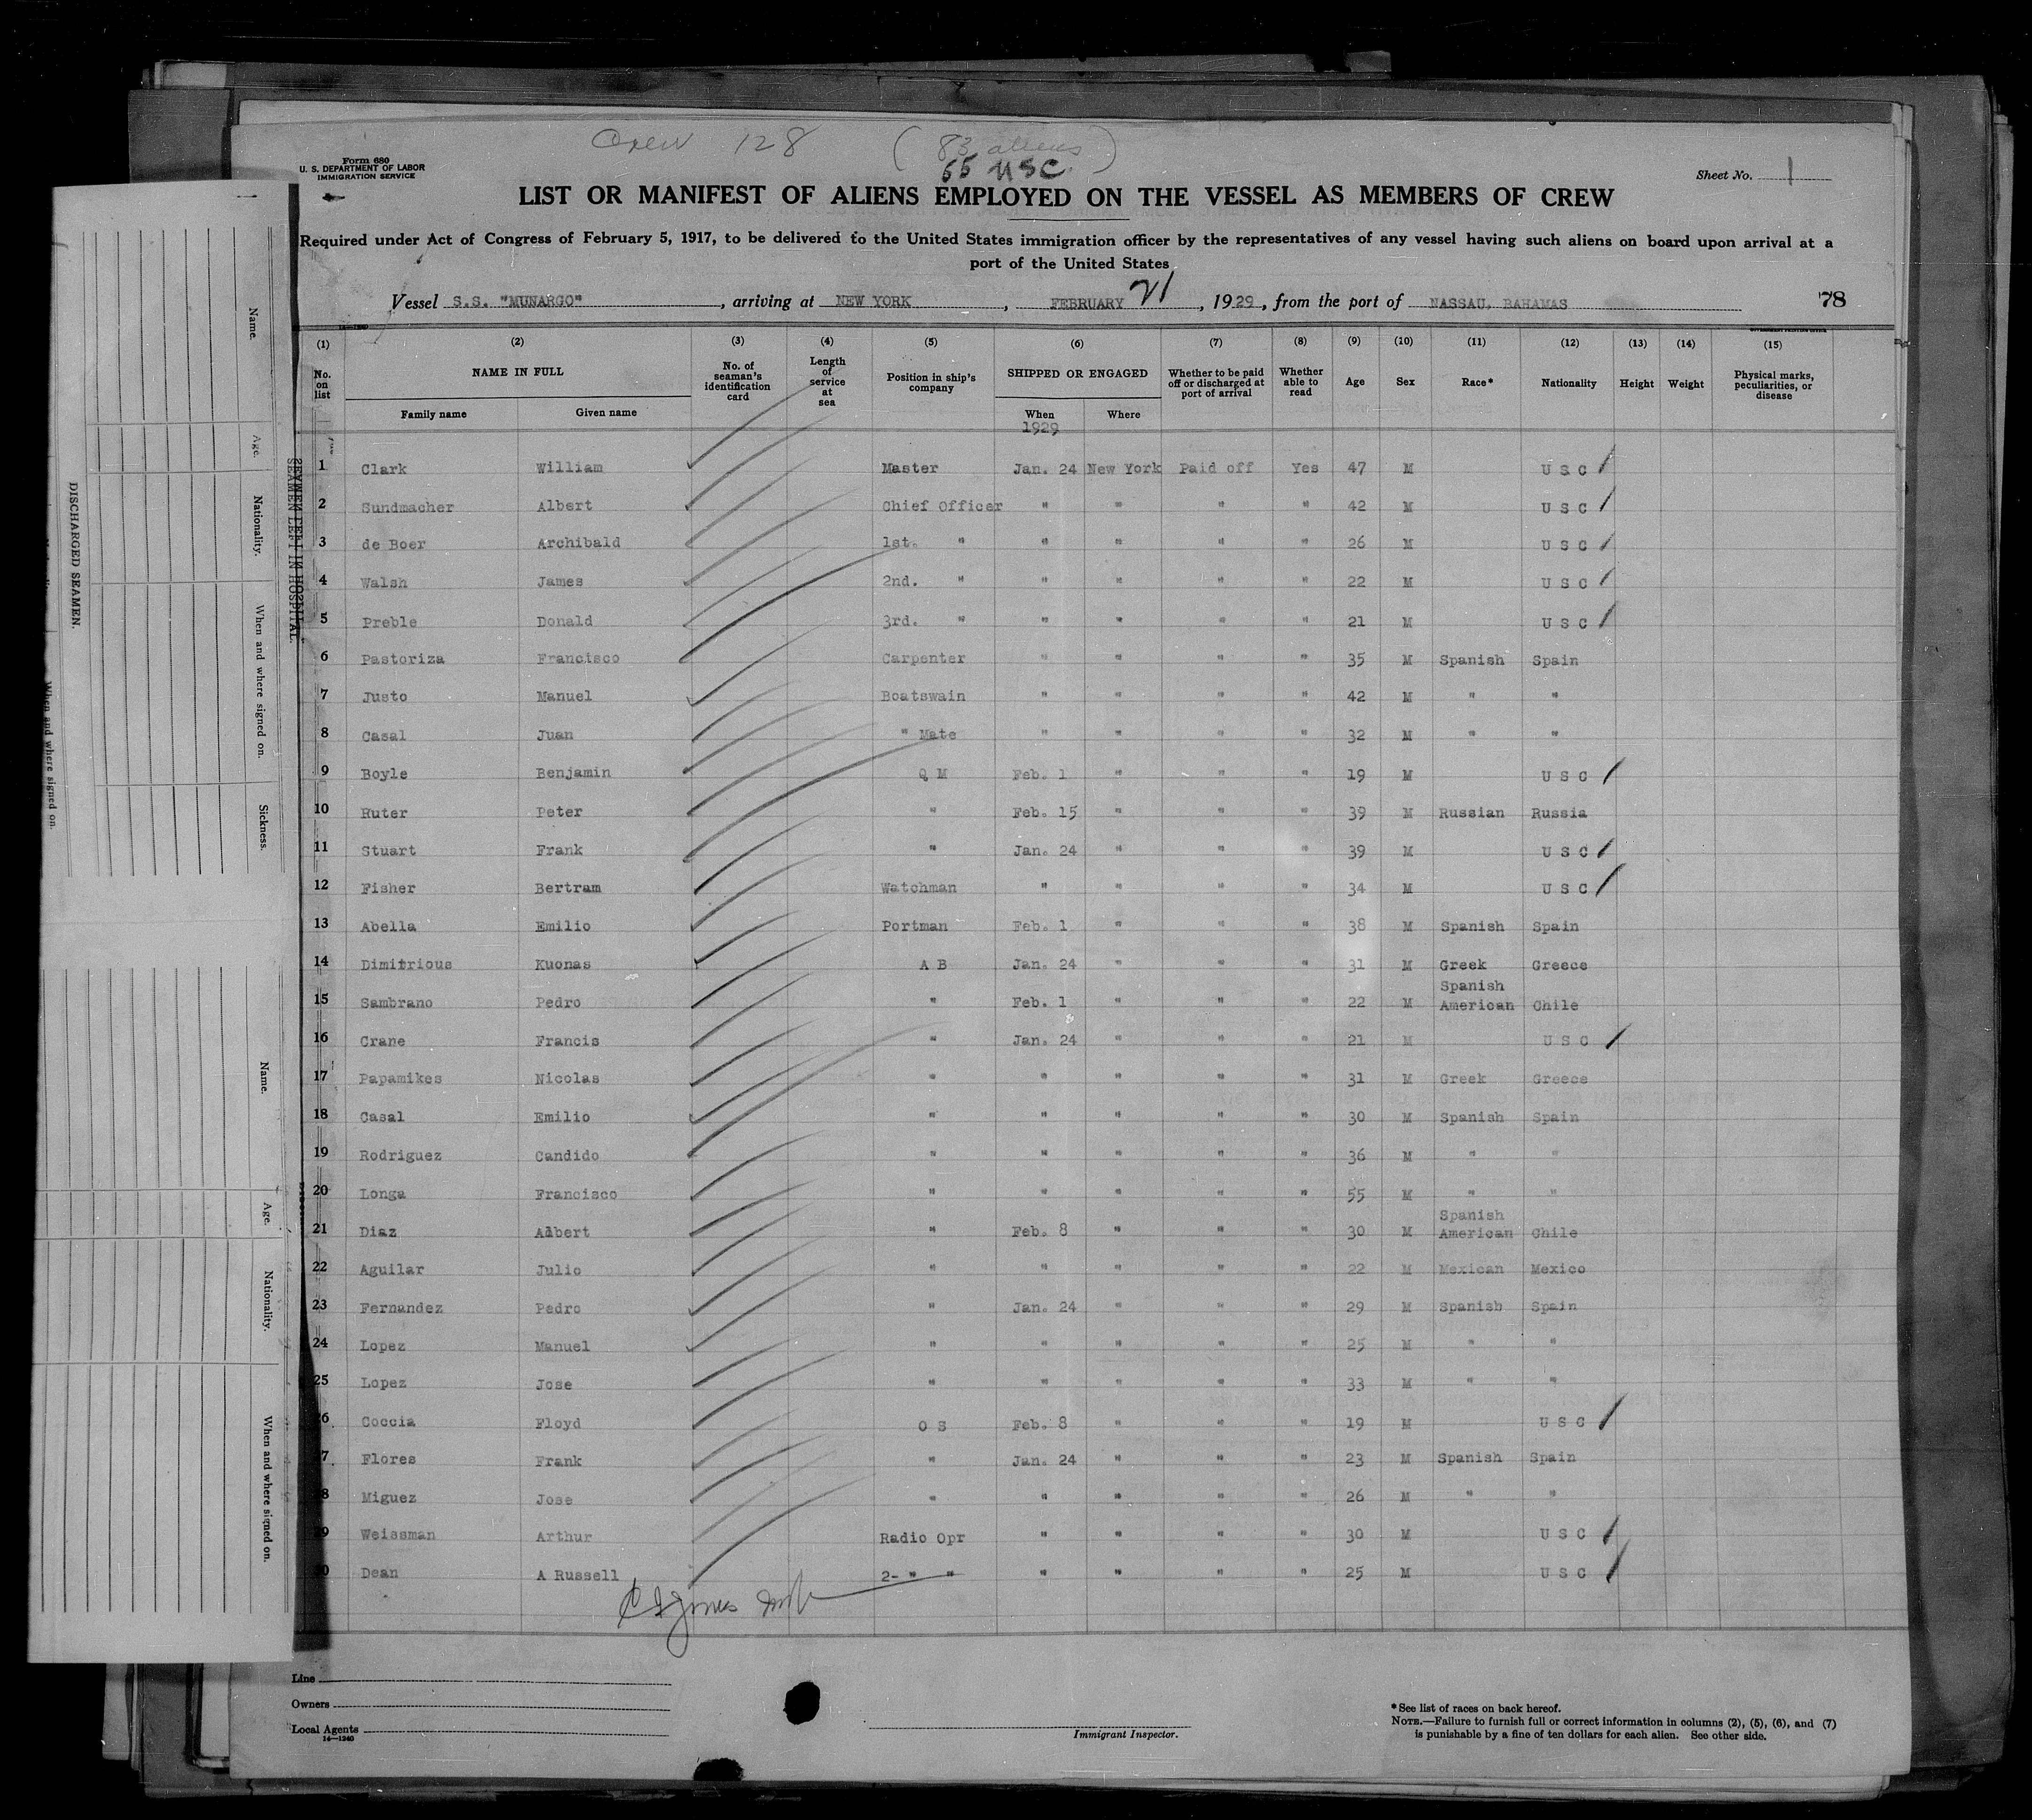 Crew 128 (83 aliens)
55 USC.
Form 680
U. S. DEPARTMENT OF LABOR
IMMIGRATION SERVICE
Sheet No. 1
LIST OR MANIFEST OF ALIENS EMPLOYED ON THE VESSEL AS MEMBERS OF CREW
Required under Act of Congress of February 5, 1917, to be delivered to the United States immigration officer by the representatives of any vessel having such aliens on board upon arrival at a
port of the United States
Vessel S.S. "MUNARGO", arriving at NEW YORK, FEBRUARY 21, 1929, from the port of NASSAU, BAHAMAS 78
(1) (2) (3) (4) (5) (6) (7) (8) (9) (10) (11) (12) (13) (14) (15)
No. on list NAME IN FULL No. of seaman's identification card Length of service at sea Position in ship's company SHIPPED OR ENGAGED Whether to be paid off or discharged at port of arrival Whether able to read Age Sex Race* Nationality Height Weight Physical marks, peculiarities, or disease
Family name Given name When Where
1929
1 Clark William Master Jan. 24 New York Paid off Yes 47 M U S C
2 Sundmacher Albert Chief Officer " " " " 42 M U S C
3 de Boer Archibald 1st. " " " " " 26 M U S C
4 Walsh James 2nd. " " " " " 22 M U S C
5 Preble Donald 3rd. " " " " " 21 M U S C
6 Pastoriza Francisco Carpenter " " " " 35 M Spanish Spain
7 Justo Manuel Boatswain " " " " 42 M " "
8 Casal Juan " Mate " " " " 32 M " "
9 Boyle Benjamin Q M Feb. 1 " " " 19 M U S C
10 Ruter Peter " Feb. 15 " " " 39 M Russian Russia
11 Stuart Frank " Jan. 24 " " " 39 M U S C
12 Fisher Bertram Watchman " " " " 34 M U S C
13 Abella Emilio Portman Feb. 1 " " " 38 M Spanish Spain
14 Dimitrious Kuonas A B Jan. 24 " " " 31 M Greek Greece
15 Sambrano Pedro " Feb. 1 " " " 22 M Spanish American Chile
16 Crane Francis " Jan. 24 " " " 21 M U S C
17 Papamikes Nicolas " " " " " 31 M Greek Greece
18 Casal Emilio " " " " " 30 M Spanish Spain
19 Rodriguez Candido " " " " " 36 M " "
20 Longa Francisco " " " " " 55 M " "
21 Diaz Albert " Feb. 8 " " " 30 M Spanish American Chile
22 Aguilar Julio " " " " " 22 M Mexican Mexico
23 Fernandez Pedro " Jan. 24 " " " 29 M Spanish Spain
24 Lopez Manuel " " " " " 25 M " "
25 Lopez Jose " " " " " 33 M " "
26 Coccia Floyd O S Feb. 8 " " " 19 M U S C
27 Flores Frank " Jan. 24 " " " 23 M Spanish Spain
28 Miguez Jose " " " " " 26 M " "
29 Weissman Arthur Radio Opr " " " " 30 M U S C
30 Dean A Russell 2- " " " " " " 25 M U S C
Line
Owners
Local Agents
14—1240
Immigrant Inspector.
*See list of races on back hereof.
NOTE.—Failure to furnish full or correct information in columns (2), (5), (6), and (7)
is punishable by a fine of ten dollars for each alien. See other side.
DISCHARGED SEAMEN.
SEAMEN LEFT IN HOSPITAL.
Name.
Age.
Nationality.
When and where signed on.
Sickness.
Name.
Age.
Nationality.
When and where signed on.
When and where signed on.